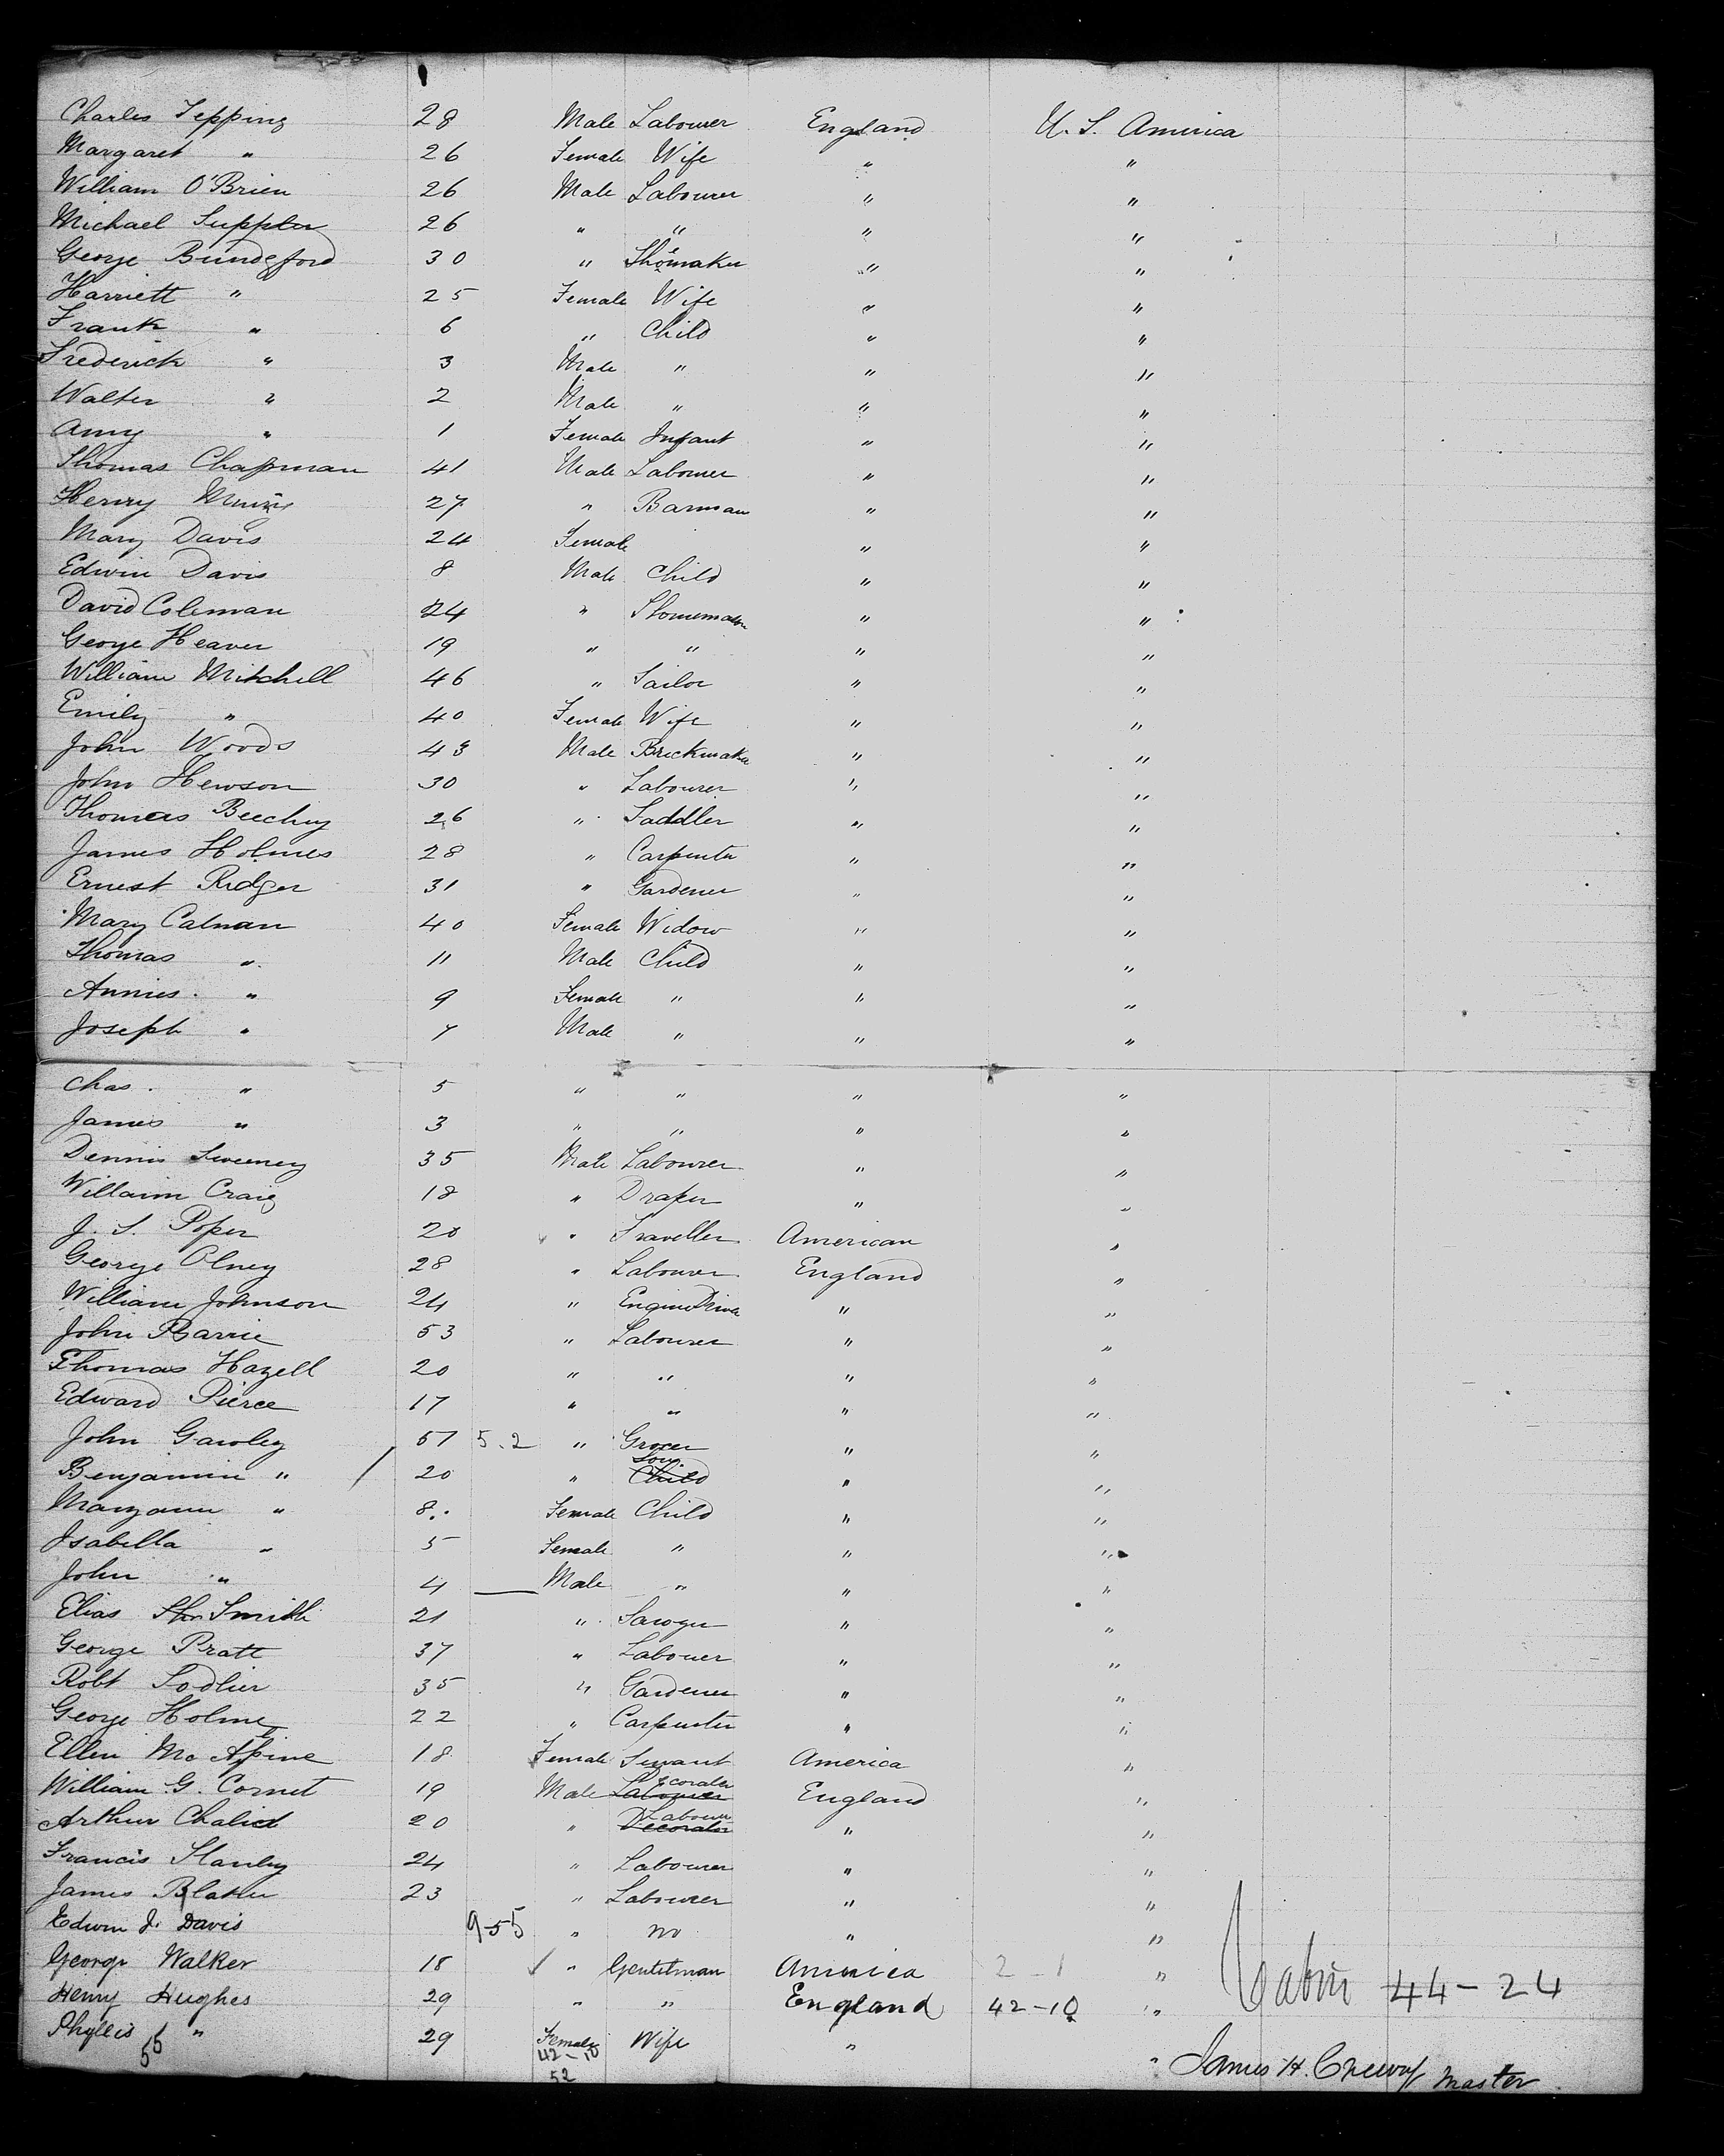 Charles Tepping 28 Male Labourer England U. S. America
Margaret " 26 Female Wife " "
William O'Brien 26 Male Labourer " "
Michael Suppler 26 " " " "
George Bundeford 30 " Shoemaker " "
Harriett " 25 Female Wife " "
Frank " 6 " Child " "
Frederick " 3 Male " " "
Walter " 2 Male " " "
Amy " 1 Female Infant " "
Thomas Chapman 41 Male Labourer " "
Henry 27 " Barman " "
Mary Davis 24 Female " "
Edwin Davis 8 Male Child " "
David Coleman 24 " " "
George Heaver 19 " " " "
William Mitchell 46 " Sailor " "
Emily " 40 Female Wife " "
John Woods 43 Male Brickmaker " "
John Hewson 30 " Labourer " "
Thomas Beeching 26 " Saddler " "
James Holmes 28 " Carpenter " "
Ernest Ridger 31 " Gardener " "
Mary Calnan 40 Female Widow " "
Thomas " 11 Male Child " "
Annies " 9 Female " " "
Joseph " 7 Male " " "
Chas. " 5 " " " "
James " 3 " " " "
Dennis Sweeney 35 Male Labourer " "
Willaim Craig 18 " Draper " "
J. S. Poper 20 " Traveller American "
George Olney 28 " Labourer England "
William Johnson 24 " Engine Driver " "
John Barrie 53 " Labourer " "
Thomas Hazell 20 " " " "
Edward Pierce 17 " " " "
John Gawley 51 5.2 " Grocer " "
Benjamin " 20 " Son Child " "
Maryann " 8 Female Child " "
Isabella " 5 Female " " "
John " 4 Male " " "
Elias Smith 21 " Sawyer " "
George Pratt 37 " Labouer " "
Robt Sodlier 35 " Gardener " "
George Holme 22 " Carpenter " "
Ellen McApine 18 Female Servant America "
William G. Cornet 19 Male Labourer Decorater England "
Arthur 20 " Decorater Labourer " "
Francis Stanley 24 " Labourer " "
James 23 " Labourer " "
Edwin J. Davis 9-55 " no " "
George Walker 18 " Gentelman America 2-1 "
Henry Hughes 29 " " England 42-10 " Cabin 44-24
Phyllis " 29 Female Wife " "
55 42-10
52
James H. Master